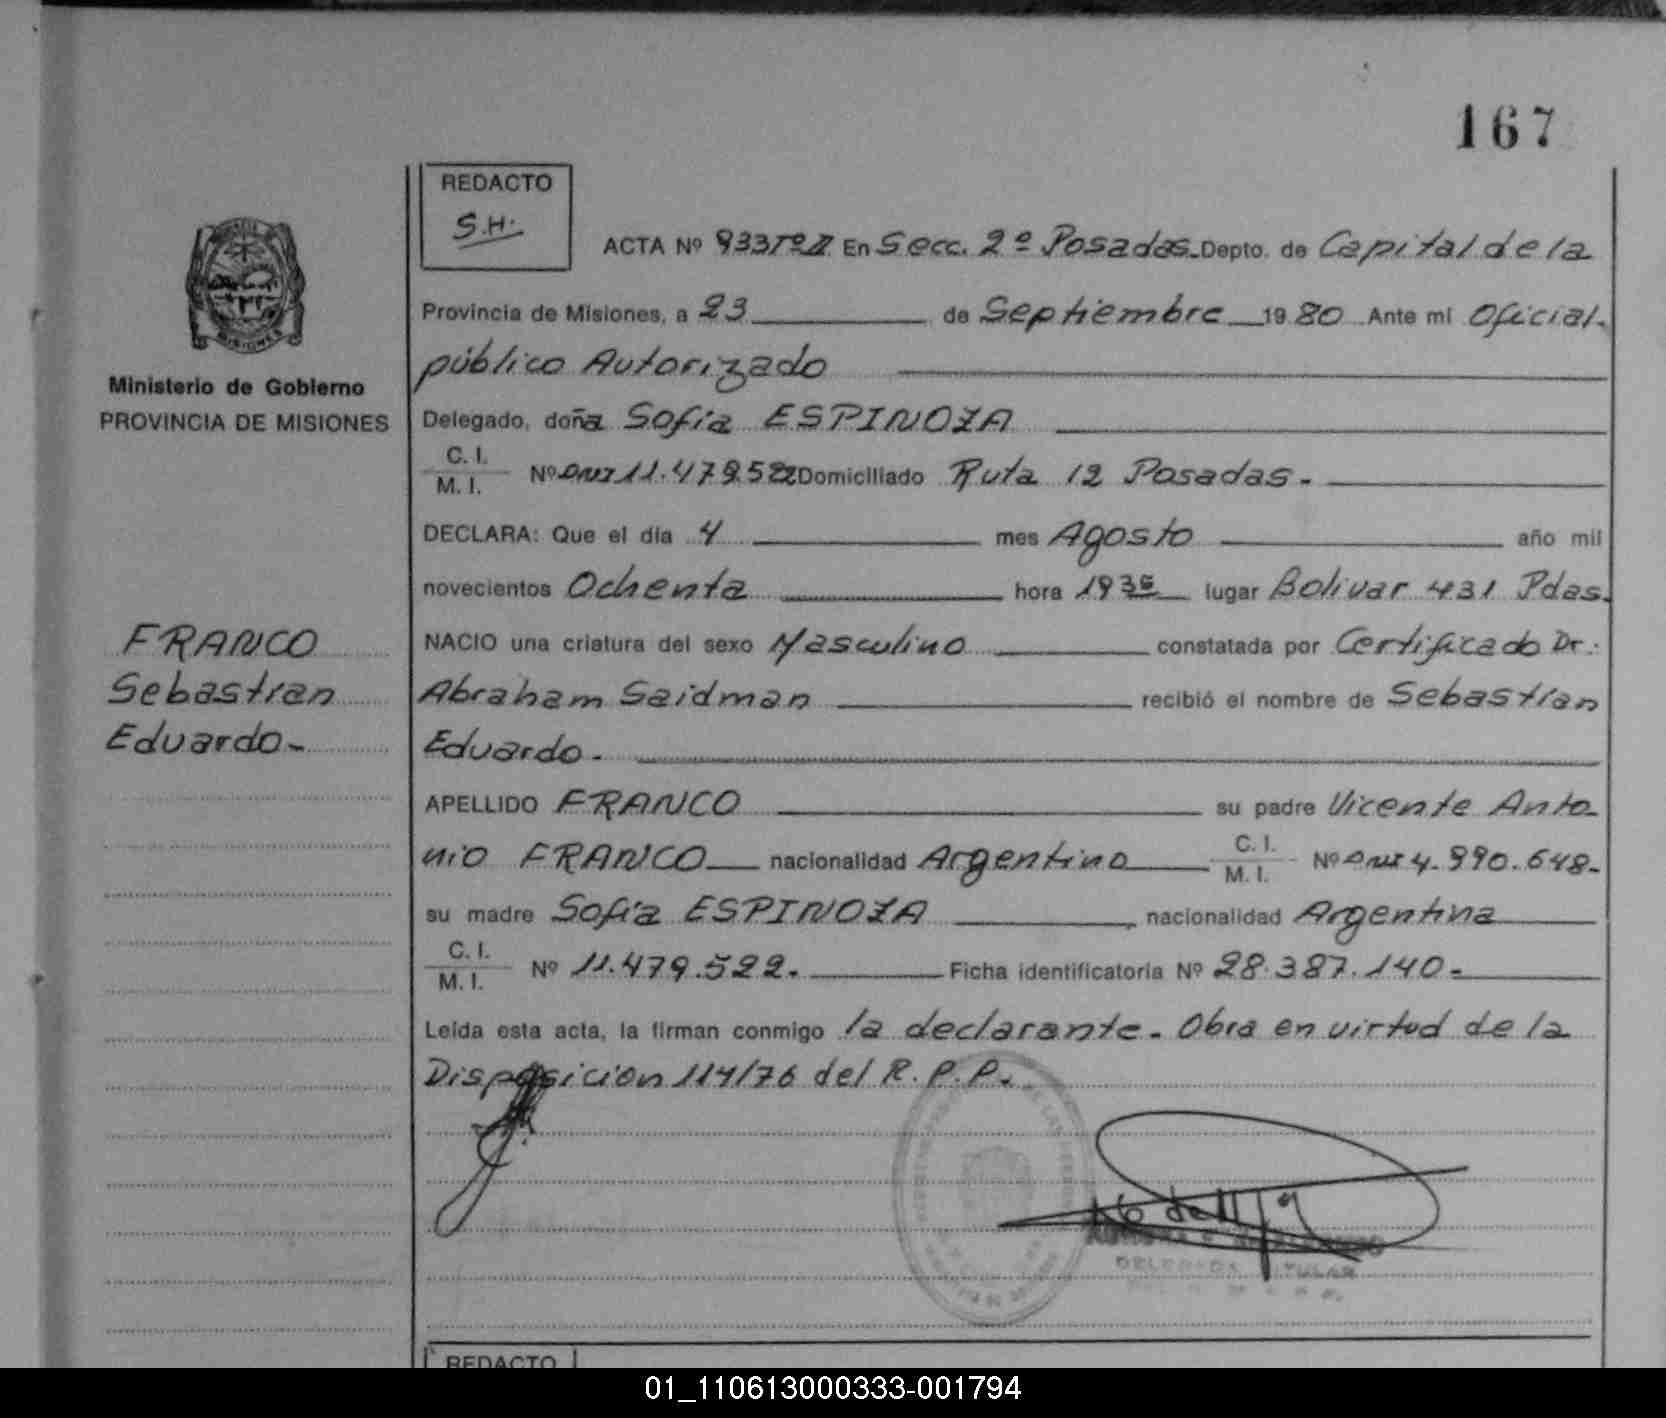 167
REDACTO
S.H.
ACTA Nº 933Tº II En Secc. 2º Posadas Depto. de Capital de la
Provincia de Misiones, a 23 de Septiembre 19 80 Ante mí Oficial
público Autorizado
Delegado, doña Sofía ESPINOZA
C. I.
M. I. Nº DNI 11.479.522 Domiciliado Ruta 12 Posadas.
DECLARA: Que el día 4 mes Agosto año mil
novecientos Ochenta hora 19 lugar Bolivar 431 Pdas.
NACIO una criatura del sexo Masculino constatada por Certificado Dr:
Abraham Saidman recibió el nombre de Sebastian
Eduardo.
APELLIDO FRANCO su padre Vicente Anto
nio FRANCO nacionalidad Argentino C. I.
M. I. Nº DNI 4.990.648.
su madre Sofía ESPINOZA, nacionalidad Argentina
C. I.
M. I. Nº 11.479.522. Ficha identificatoria Nº 28.387.140.
Leída esta acta, la firman conmigo la declarante. Obra en virtud de la
Disposicion 114/76 del R.P.P.
DELEGADA TITULAR
Ministerio de Gobierno
PROVINCIA DE MISIONES
FRANCO
Sebastian
Eduardo-
REDACTO
01_110613000333-001794